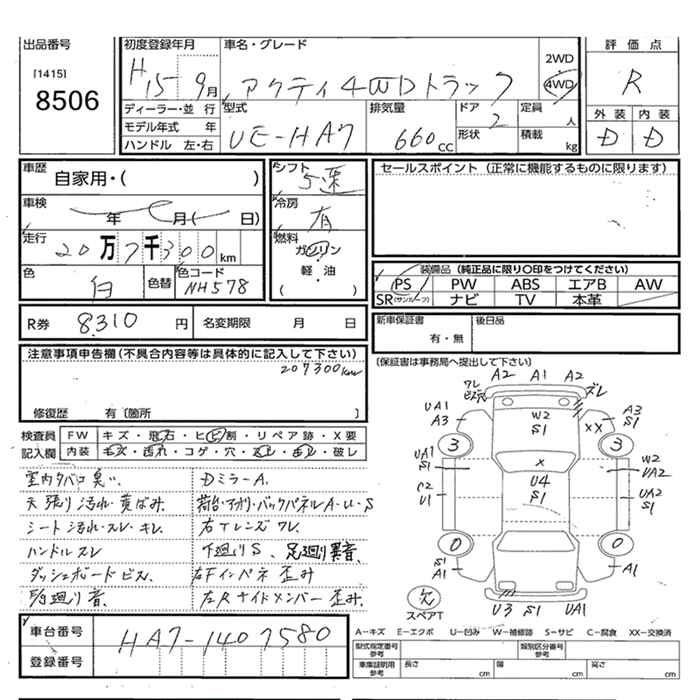 出品番号
[1415]
8506
初度登録年月
H15年9月
車名・グレード
アクティ4WDトラック
2WD
4WD
評価点
R
外装 内装
D D
ディーラー・並行
モデル年式 年
ハンドル 左・右
型式
UE-HA7
排気量
660cc
ドア
2
形状
定員
人
積載
kg
車歴
自家用・( )
車検
年 月( 日)
走行
20万7千300km
色
白
色替
色コード
NH578
シフト
5速
冷房
有
燃料
ガソリン
軽・油
( )
セールスポイント (正常に機能するものに限ります)
装備品 (純正品に限り〇印をつけてください)
PS PW ABS エアB AW
SR(サンルーフ) ナビ TV 本革
R券 8310円 名変期限 月 日
新車保証書
有・無
後日品
(保証書は事務局へ提出して下さい)
注意事項申告欄(不具合内容等は具体的に記入して下さい)
207300km
修復歴 有〔箇所 〕
検査員
記入欄
FW キズ・飛石・ヒビ割・リペア跡・X要
内装 キズ・汚れ・コゲ・穴・スレ・ヨレ・破レ
室内タバコ臭い.
天張り汚れ・黄ばみ.
シート汚れ・スレ・キレ.
ハンドルスレ
ダッシュボードビス.
DミラーA.
荷台・アオリ・バックパネルA・U・S
右Tレンズワレ.
下廻りS、足廻り異音.
右Fインパネ歪み
左Rサイドメンバー歪み.
A2 A1 A2
ワレ
ビス穴
ズレ
UA1
A3
W2
S1
A3
S1
XX
3
3
UA1
S1
X
W2
UA2
U4
S1
C2
U1
UA2
S1
0
0
S1
A1
A1
欠
スペアT
U3 S1 UA1
車台番号
HA7-1407580
登録番号
A-キズ E-エクボ U-凹み W-補修跡 S-サビ C-腐食 XX-交換済
型式指定番号
参考
類別区分番号
参考
車庫証明用
参考
長さ cm 幅 cm 高さ cm